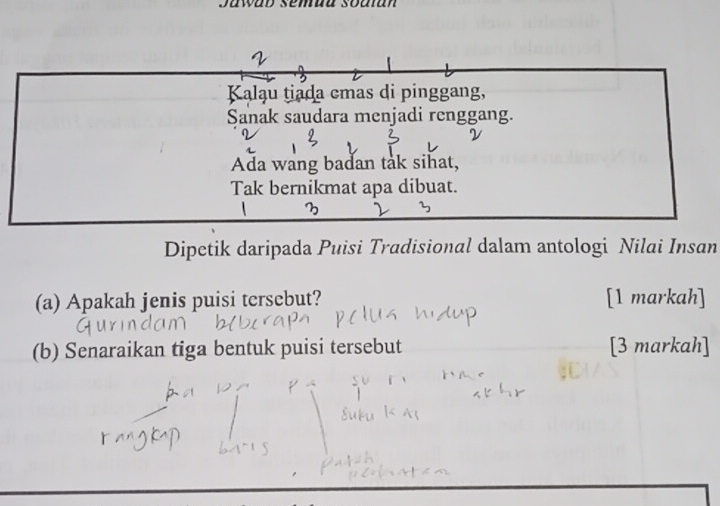 Jawab semua soalan
2
2 3 2 1 2
Kalau tiada emas di pinggang,
Sanak saudara menjadi renggang.
2 3 3 2
2 1 2 1 2
Ada wang badan tak sihat,
Tak bernikmat apa dibuat.
1 3 2 3
Dipetik daripada Puisi Tradisional dalam antologi Nilai Insan
(a) Apakah jenis puisi tersebut? [1 markah]
Gurindam beberapa petua hidup
(b) Senaraikan tiga bentuk puisi tersebut [3 markah]
ba pa su ri rima
akhir
rangkap baris suku kata
patah
perkataan